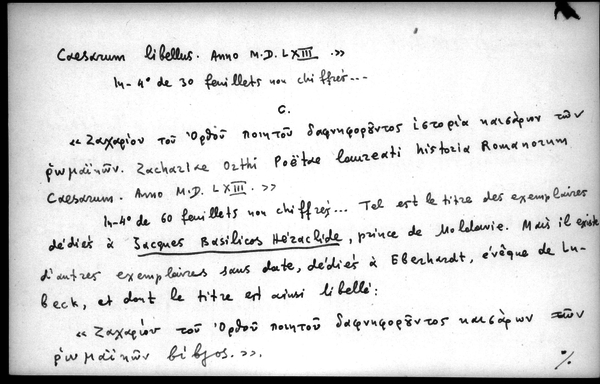 Caesarum libellus. Anno M.D.LXIII.»
In-4° de 30 feuillets non chiffrés...
C.
« Ζαχαρίου τοῦ Ὀρθοῦ ποιητοῦ δαφνηφοροῦντος ἱστορία καισάρων τῶν
ῥωμαϊκῶν. Zachariae Orthi Poëtae laureati historia Romanorum
Caesarum. Anno M.D.LXIII. »
In-4° de 60 feuillets non chiffrés... Tel est le titre des exemplaires
dédiés à Jacques Basilicos Héraclide, prince de Moldavie. Mais il existe
d'autres exemplaires sans date, dédiés à Eberhardt, évêque de Lu-
beck, et dont le titre est ainsi libellé:
« Ζαχαρίου τοῦ Ὀρθοῦ ποιητοῦ δαφνηφοροῦντος καισάρων τῶν
ῥωμαϊκῶν βίβλος. ».
%